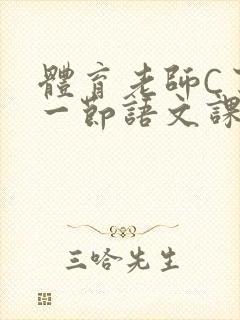 體育老師C
一節語文課
三哈先生